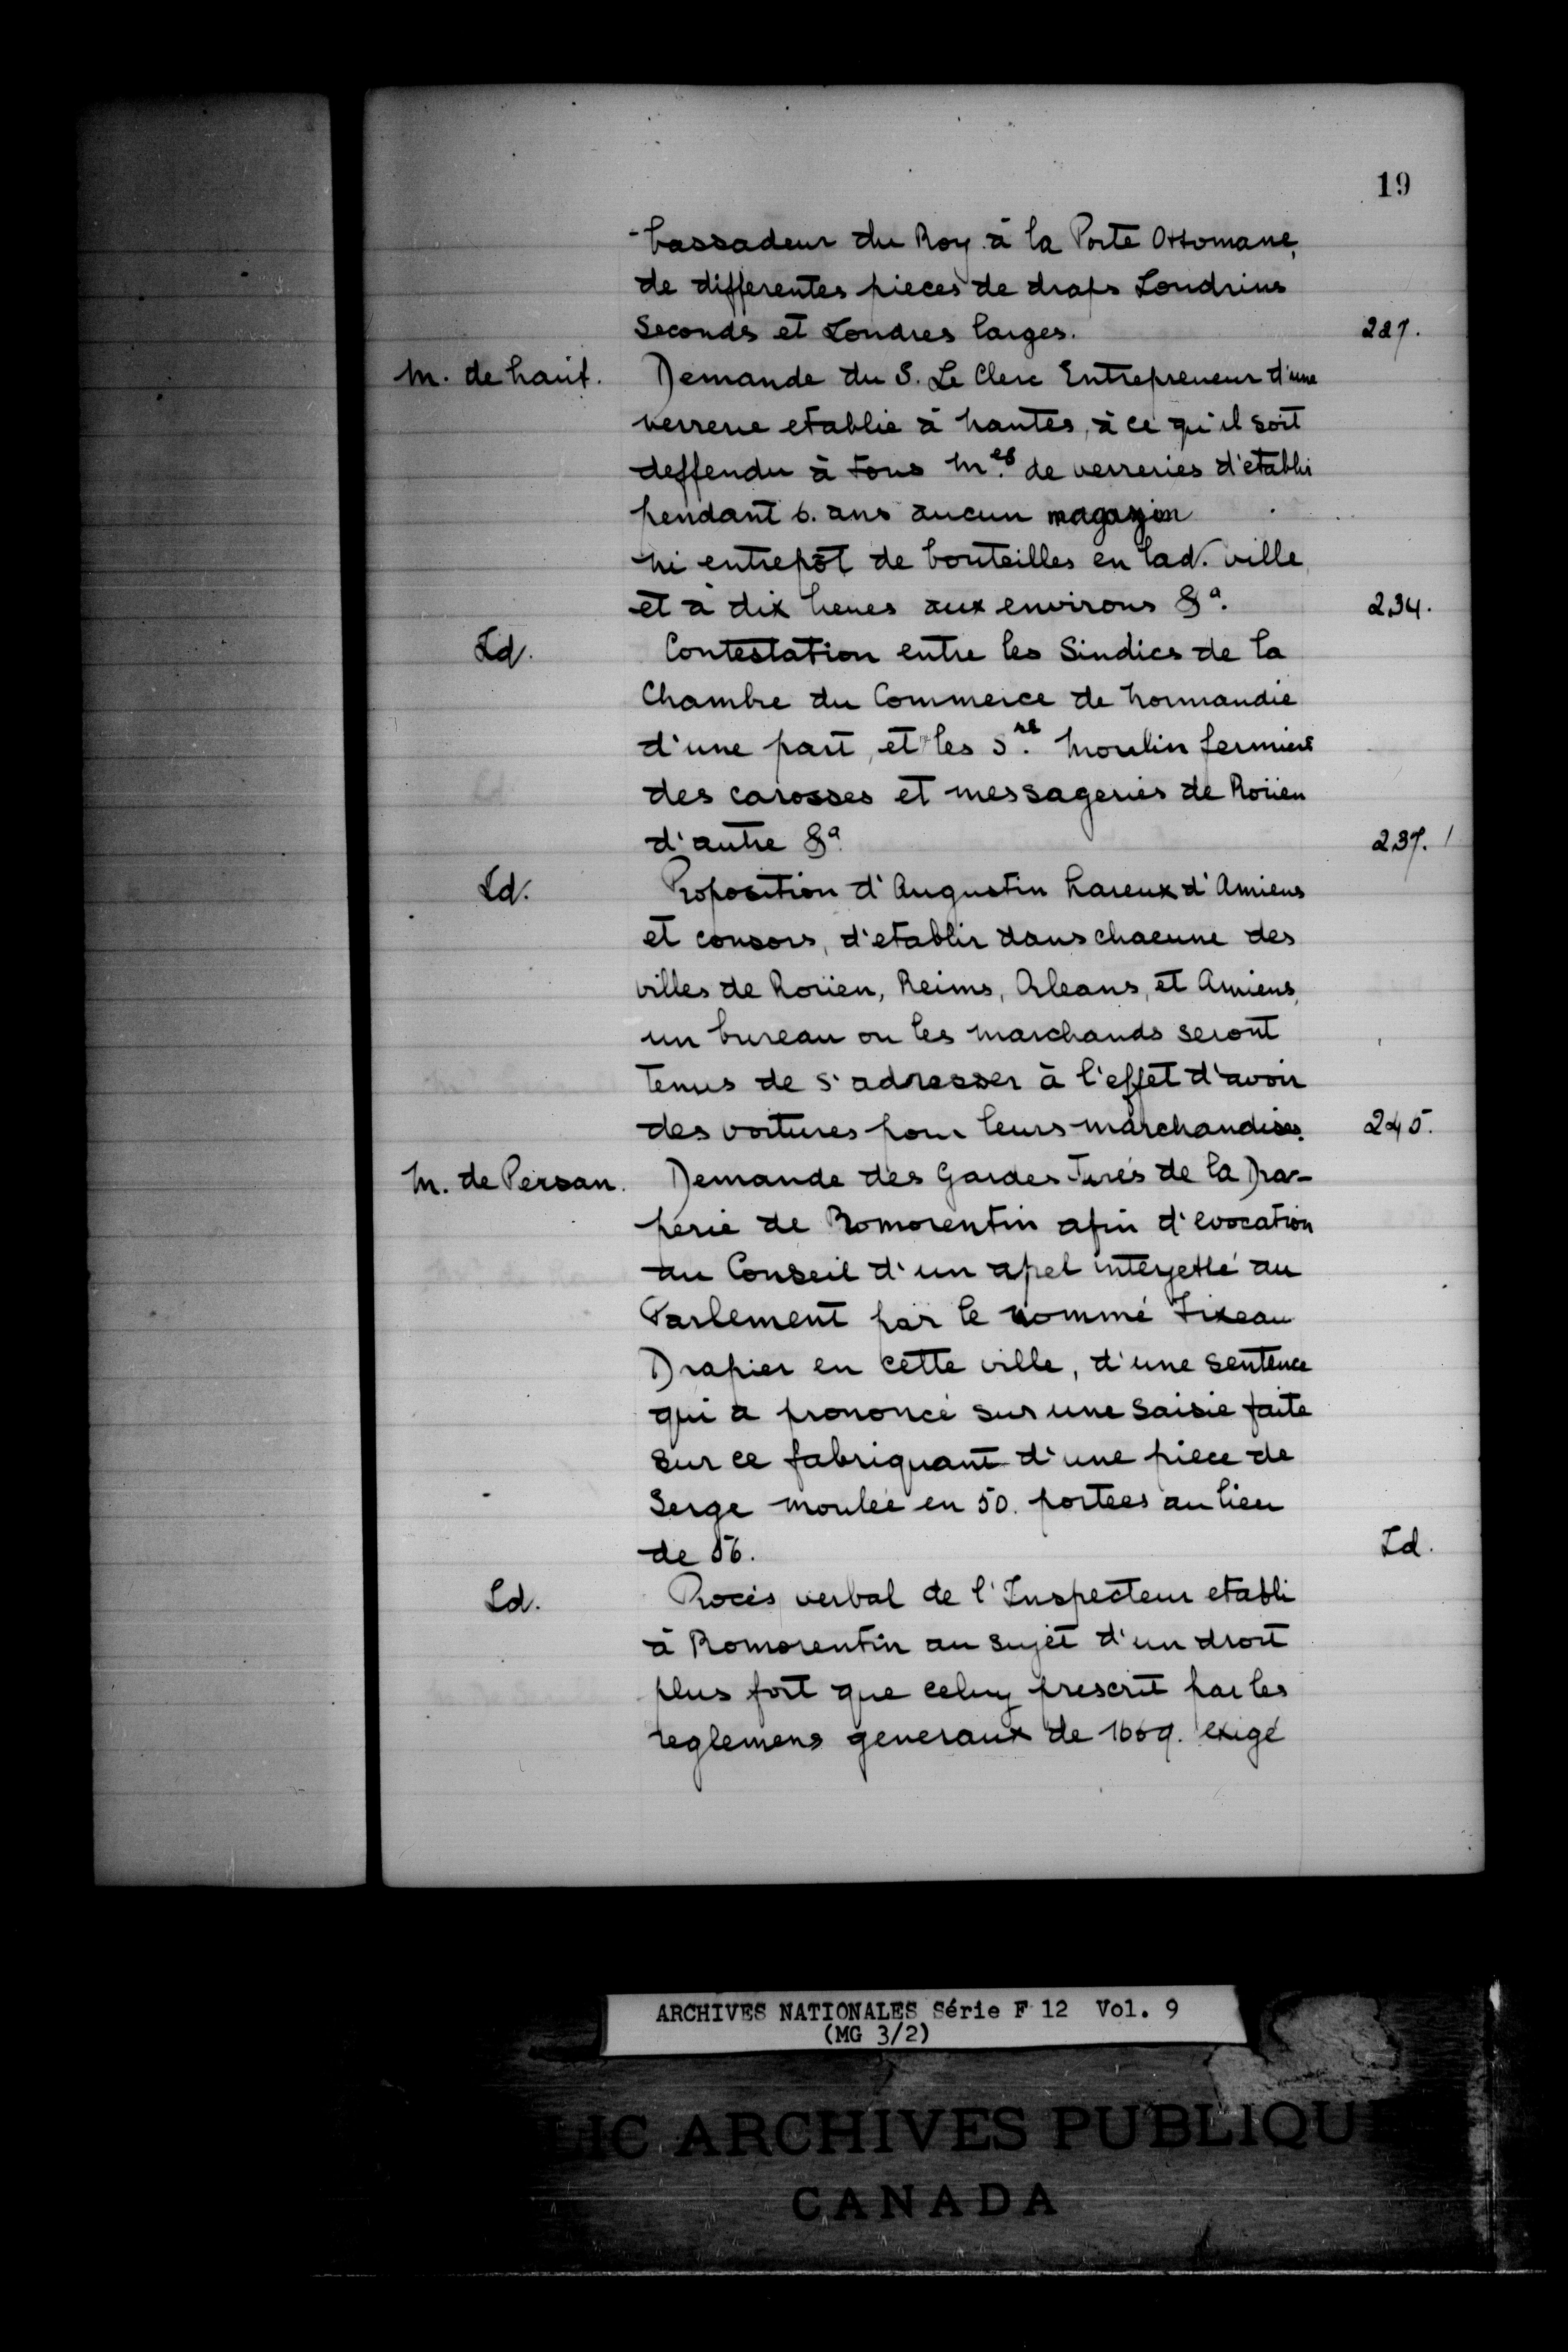 19
-bassadeur du Roy à la Porte Ottomane,
de differentes pieces de draps Londrins
Seconds et Londres larges. 227.
M. de haut. Demande du S. Le Clerc Entrepreneur d'une
verrerie etablie à Nantes, à ce qu'il soit
deffendu à tous M.es de verreries d'etablir
pendant 6. ans aucun magazin
ni entrepôt de bouteilles en lad. ville,
et à dix lieues aux environs &a. 234.
Id. Contestation entre les Sindics de la
Chambre du Commerce de Normandie
d'une part, et les S.rs Moulin fermiers
des carosses et messageries de Roüen
d'autre &a. 237.
Id. Proposition d'Augustin Lareux d'Amiens
et consors, d'etablir dans chacune des
villes de Roüen, Reims, Orleans, et Amiens,
un bureau ou les marchands seront
tenus de s'adresser à l'effet d'avoir
des voitures pour leurs marchandises. 245.
M. de Persan. Demande des Gardes Jurés de la Dra-
perie de Romorentin afin d'evocation
au Conseil d'un apel interjetté au
Parlement par le nommé Fixeau
Drapier en cette ville, d'une sentence
qui a prononcé sur une saisie faite
sur ce fabriquant d'une piece de
Serge moulée en 50. portées au lieu
de 56. Id.
Id. Procès verbal de l'Inspecteur etabli
à Romorentin au sujet d'un droit
plus fort que celuy prescrit par les
reglemens generaux de 1669. exigé
ARCHIVES NATIONALES Série F 12 Vol. 9
(MG 3/2)
LIC ARCHIVES PUBLIQU
CANADA